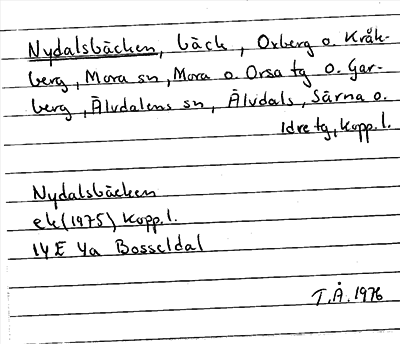 Nydalsbäcken, bäck, Oxberg o. Kråk-
berg, Mora sn, Mora o. Orsa tg o. Gar-
berg, Älvdalens sn, Älvdals, Särna o.
Idre tg, Kopp. l.
Nydalsbäcken
ek (1975) Kopp. l.
14E 4a Bosseldal
T.Å. 1976